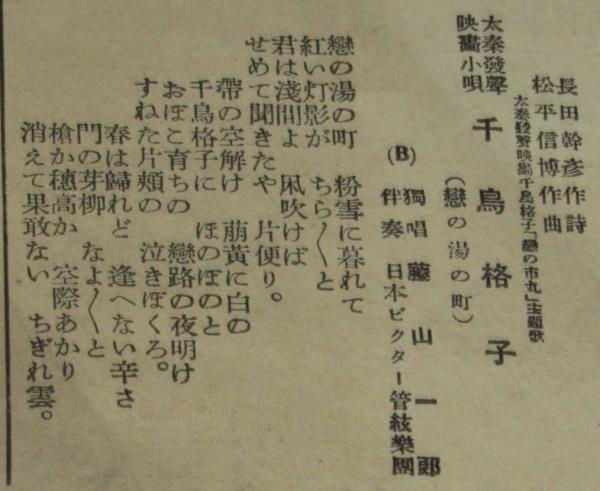 長田幹彥作詩
松平信博作曲
太秦發聲映畵千鳥格子「戀の市丸」主題歌
太秦發聲
映畵小唄
千鳥格子
(戀の湯の町)
(B)
獨唱 藤山一郎
伴奏 日本ビクター管絃樂團
戀の湯の町 粉雪に暮れて
紅い灯影が ちら〱と
君は淺間よ 凩吹けば
せめて聞きたや 片便り。
帶の空解け 萠黃に白の
千鳥格子に ほのぼのと
おぼこ育ちの 戀路の夜明け
すねた片頰の 泣きぼくろ。
春は歸れど 逢へない辛さ
門の芽柳 なよ〱と
槍か穗高か 空際あかり
消えて果敢ない ちぎれ雲。